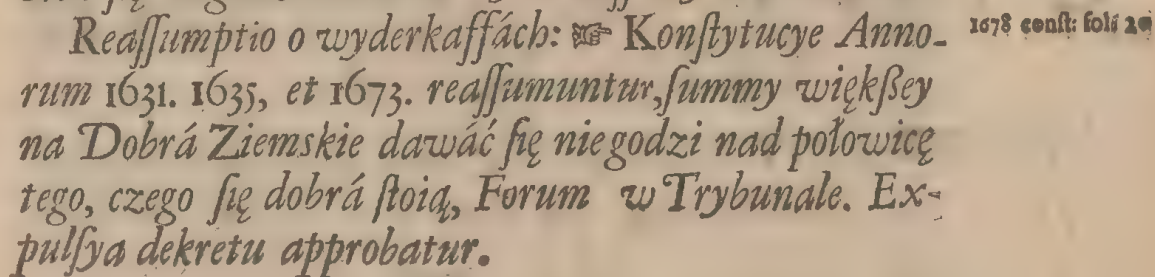 Reaſſumptio o wyderkaffách: ☞ Konſtytucye Anno-
rum 1631. 1635, et 1673. reaſſumuntur, ſummy więkſzey
na Dobrá Ziemskie dawáć ſię niegodzi nad połowicę
tego, czego ſię dobrá ſtoią, Forum w Trybunale. Ex-
pulſya dekretu approbatur.
1678 conſt: foli